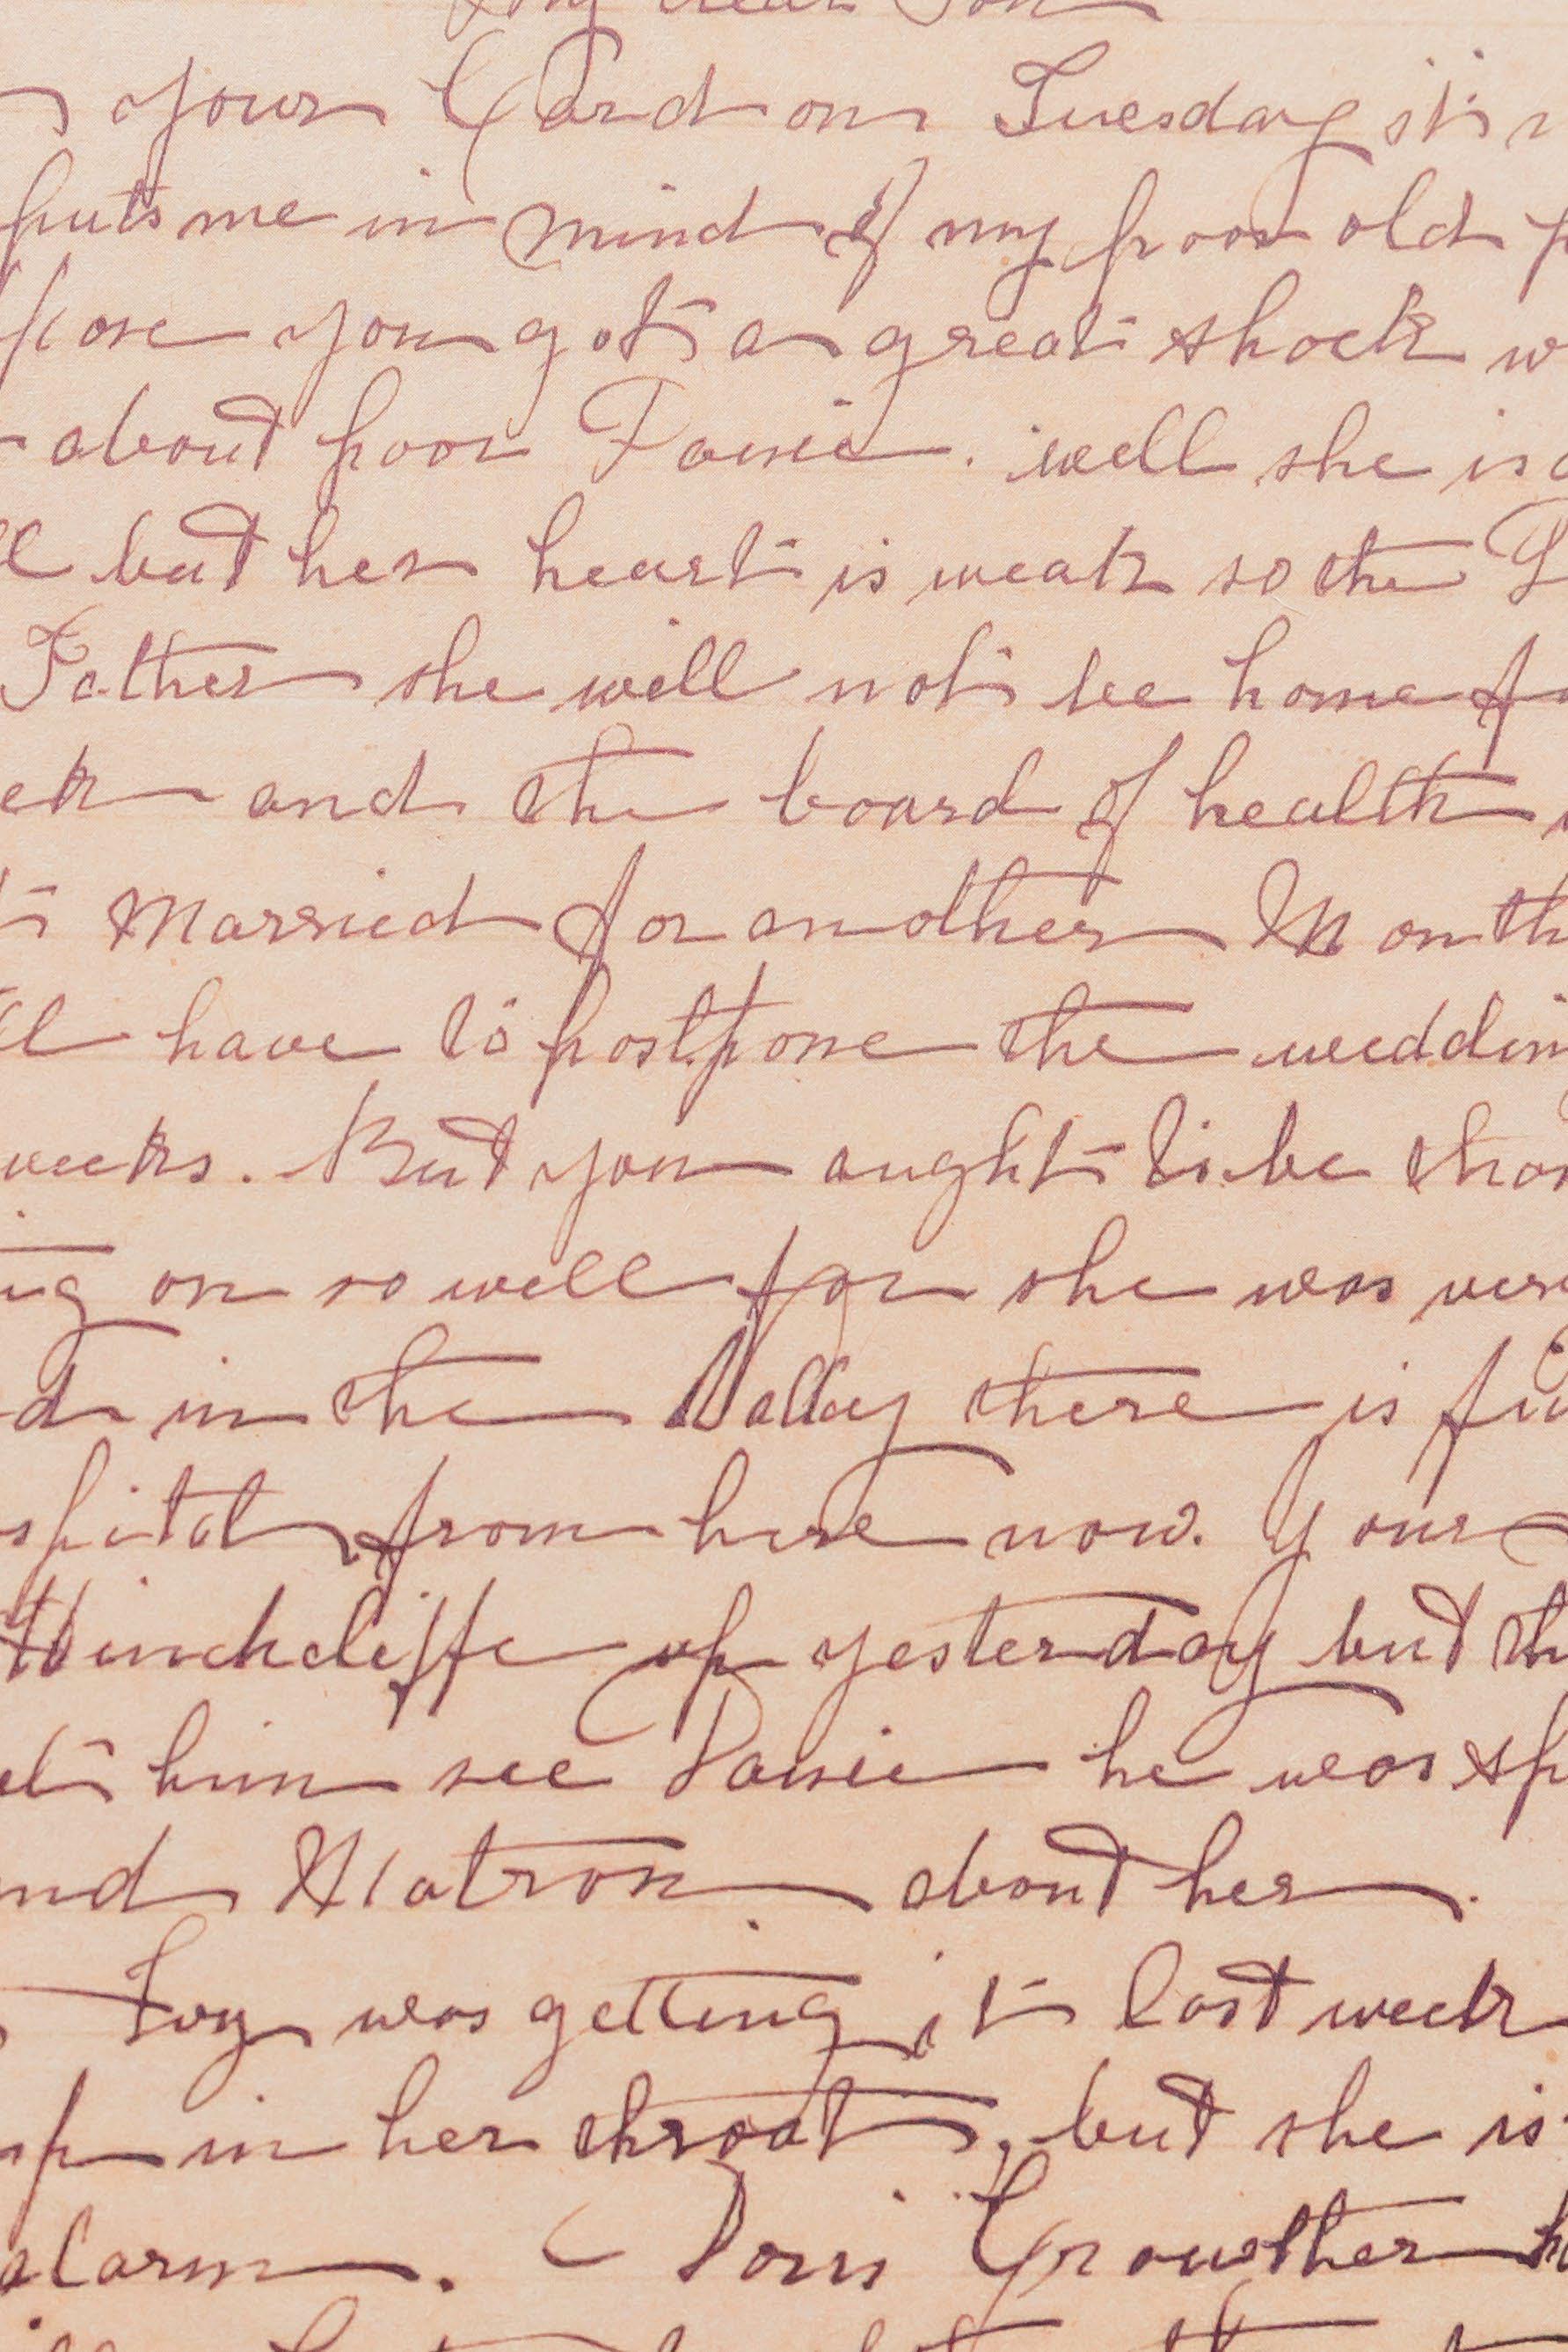 My dear Son
your Card on Tuesday it is
puts me in mind of my poor old
pose you got a great shock w
about poor Janie. well she is
ll but her heart is weak so the D
Father she will not be home fr
ek and the board of health
t married for another Month
ll have to postpone the weddin
weeks. But you aught to be than
ng on so well for she was very
d in the Valley there is fiv
spital from here now. Your
Hinchcliffe up yesterday but th
et him see Janie he was sp
nd Matron about her.
Ivy was getting it last week
up in her throat, but she is
alarm. Doris Crowther h